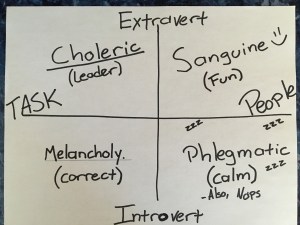 Extravert
Choleric
(Leader)
Sanguine
(Fun)
TASK
People
zzz
zzz
Melancholy.
(correct)
Phlegmatic
(calm) zzz
-Also, Naps
Introvert